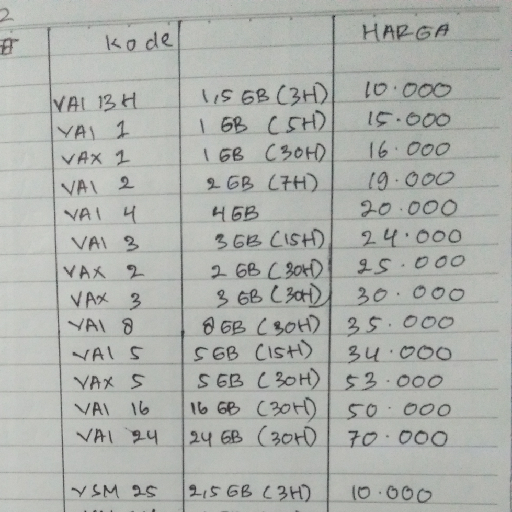 2
Kode HARGA
VAI 13H 1,5 GB (3H) 10.000
VAI 1 1 GB (5H) 15.000
VAX 1 1 GB (30H) 16.000
VAI 2 2 GB (7H) 19.000
VAI 4 4 GB 20.000
VAI 3 3 GB (15H) 24.000
VAX 2 2 GB (30H) 25.000
VAX 3 3 GB (30H) 30.000
VAI 8 8 GB (30H) 35.000
VAI 5 5 GB (15H) 34.000
VAX 5 5 GB (30H) 53.000
VAI 16 16 GB (30H) 50.000
VAI 24 24 GB (30H) 70.000
VSM 25 2,5 GB (3H) 10.000